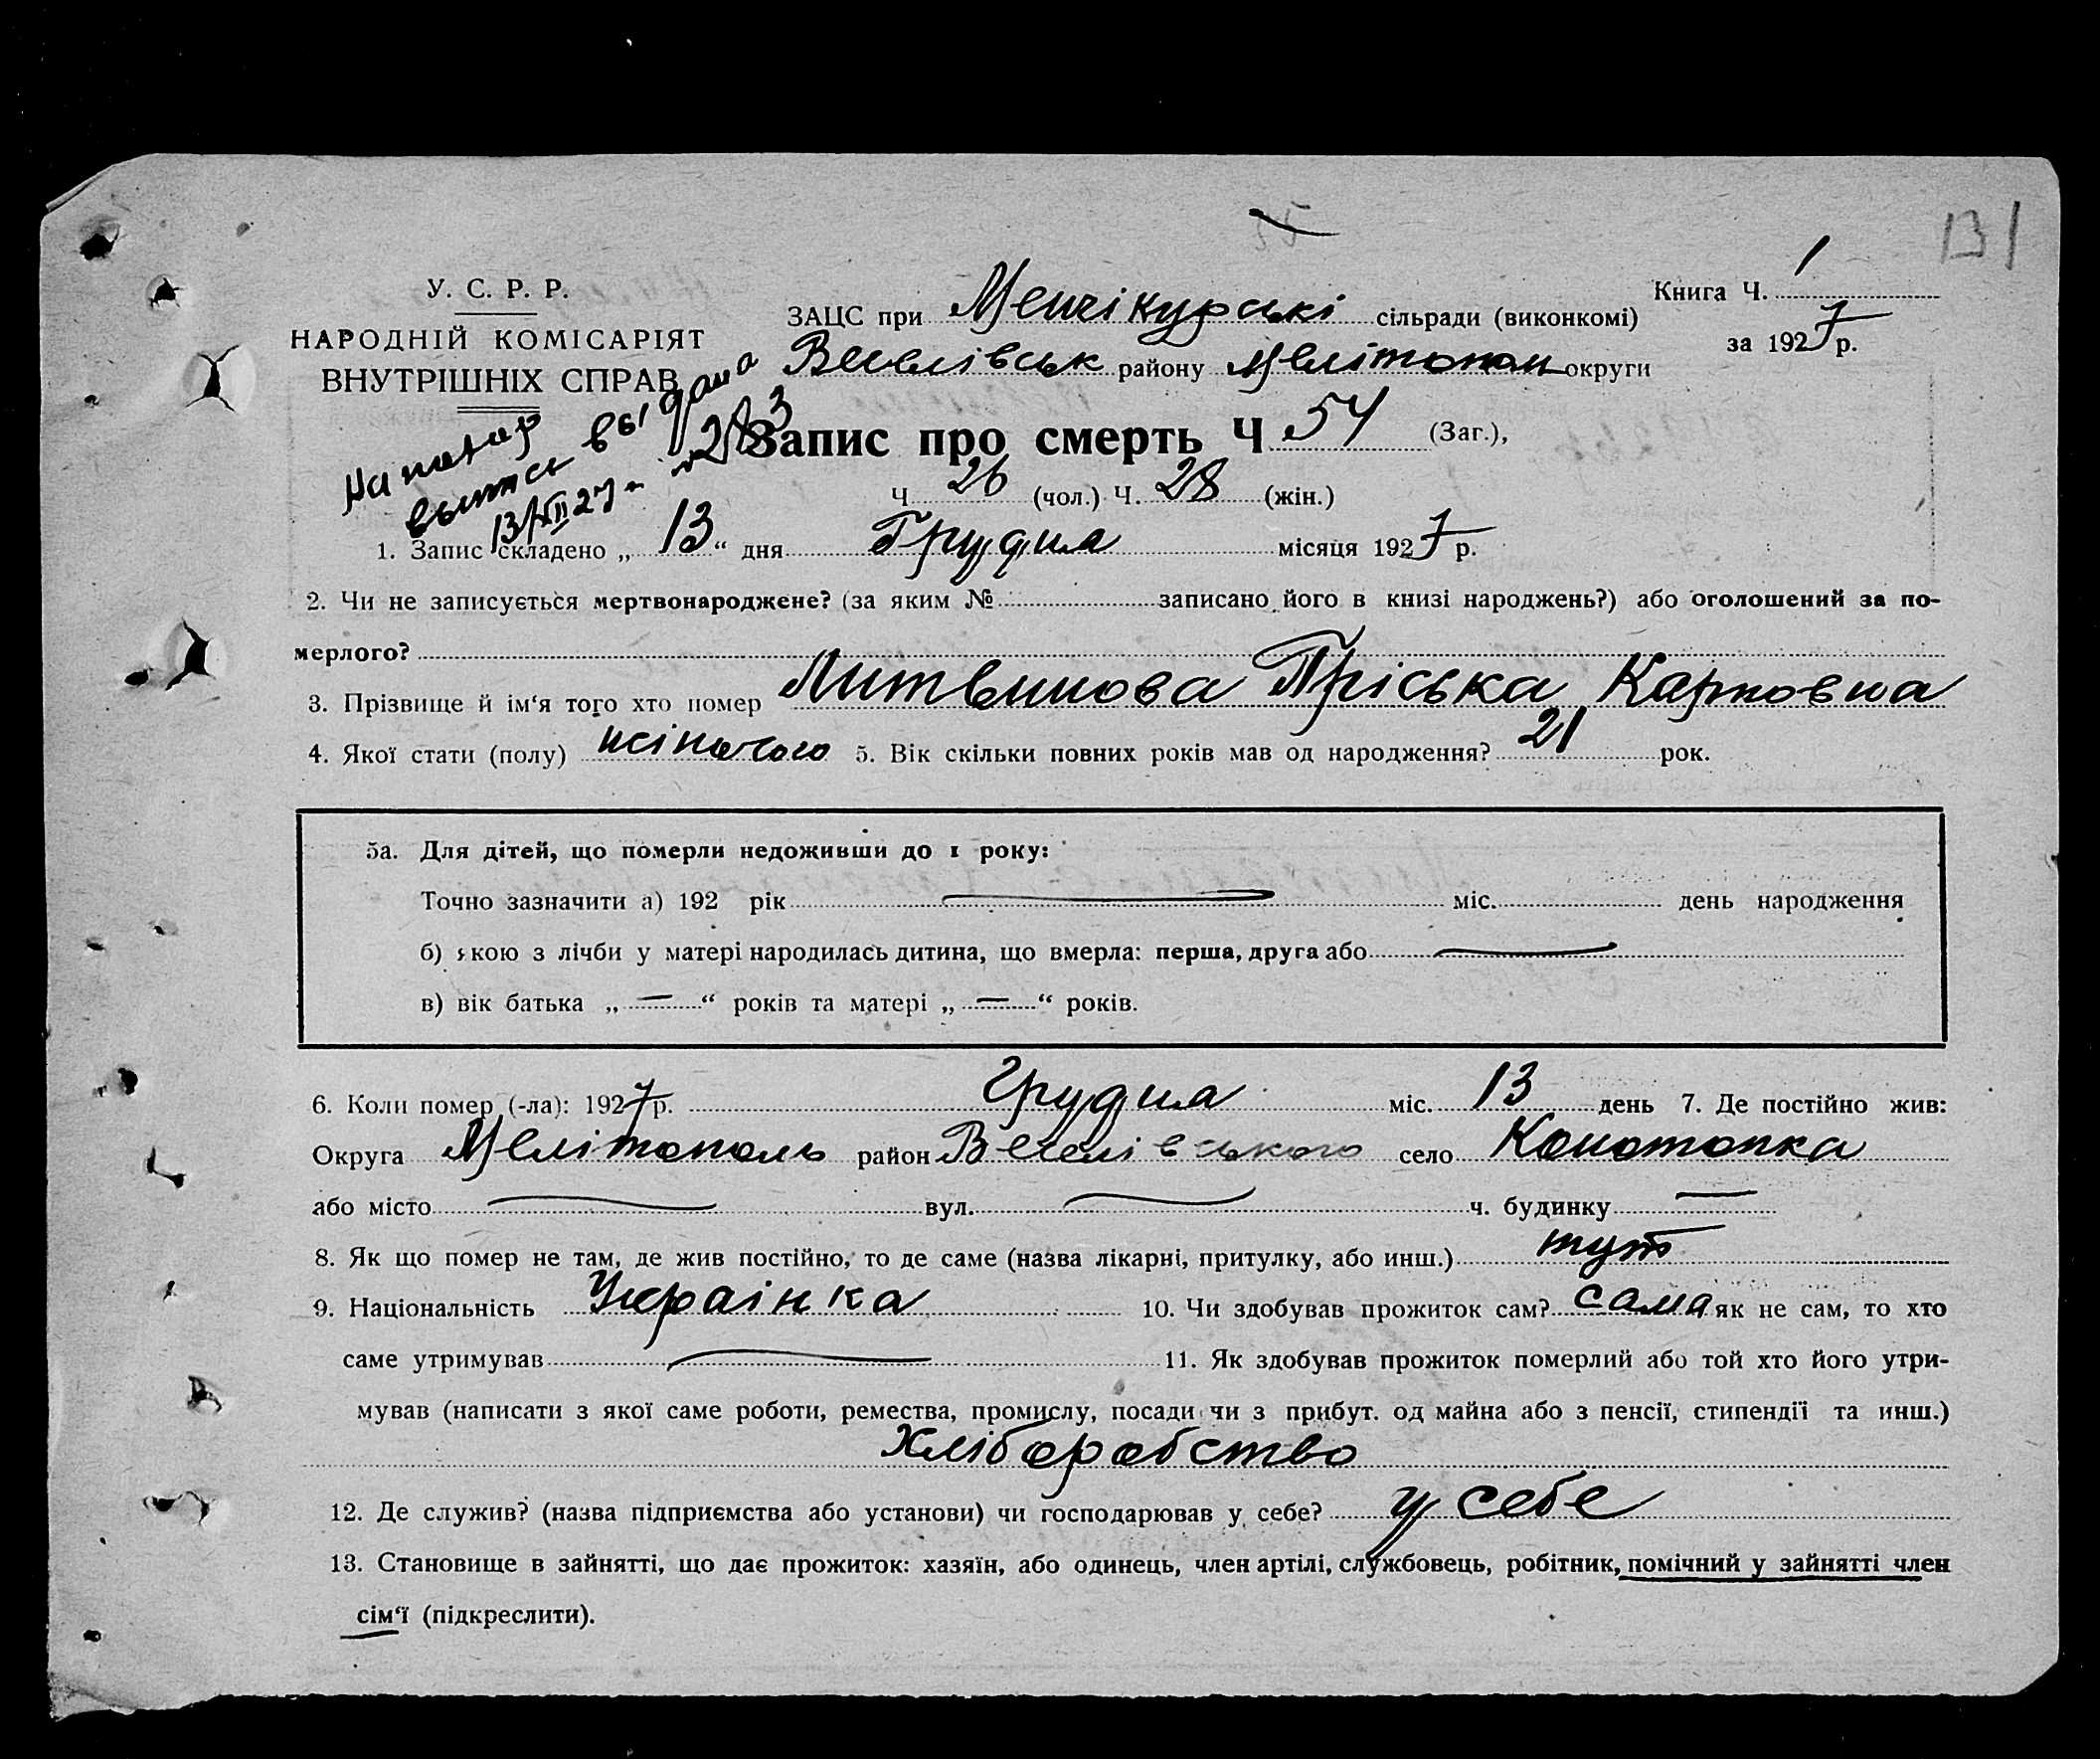 131
У. С. Р. Р.
НАРОДНІЙ КОМІСАРІЯТ
ВНУТРІШНІХ СПРАВ
ЗАЦС при Менчікурські сільради (виконкомі)
Книга Ч. 1
Веселівськ районy Мелітопол округи
за 1927 р.
выпись выдана
13/XII 27 №283
Запис про смерть Ч 54 (Заг.),
Ч 26 (чол.) Ч. 28 (жін.)
1. Запис складено „ 13 “ дня Грудня місяця 1927 р.
2. Чи не записується мертвонароджене? (за яким № записано його в книзі народжень?) або оголошений за по-
мерлого?
3. Прізвище й ім'я того хто помер Литвинова Пріська Карповна
4. Якої стати (полу) жіночого 5. Вік скільки повних років мав од народження? 21 рок.
5а. Для дітей, що померли недоживши до 1 року:
Точно зазначити а) 192 рік міс. день народження
б) якою з лічби у матері народилась дитина, що вмерла: перша, друга або
в) вік батька „ — “ років та матері „ — “ років.
6. Коли помер (-ла): 1927 р. Грудня міс. 13 день 7. Де постійно жив:
Округа Мелітополь район Веселівського село Конотопка
або місто вул. ч. будинку
8. Як що помер не там, де жив постійно, то де саме (назва лікарні, притулку, або инш.) тут
9. Національність Українка 10. Чи здобував прожиток сам? сама як не сам, то хто
саме утримував 11. Як здобував прожиток померлий або той хто його утри-
мував (написати з якої саме роботи, ремества, промислу, посади чи з прибут. од майна або з пенсії, стипендії та инш.)
Хліборобство
12. Де служив? (назва підприємства або установи) чи господарював у себе? у себе
13. Становище в зайнятті, що дає прожиток: хазяїн, або одинець, член артілі, службовець, робітник, помічний у зайнятті член
сім'ї (підкреслити).